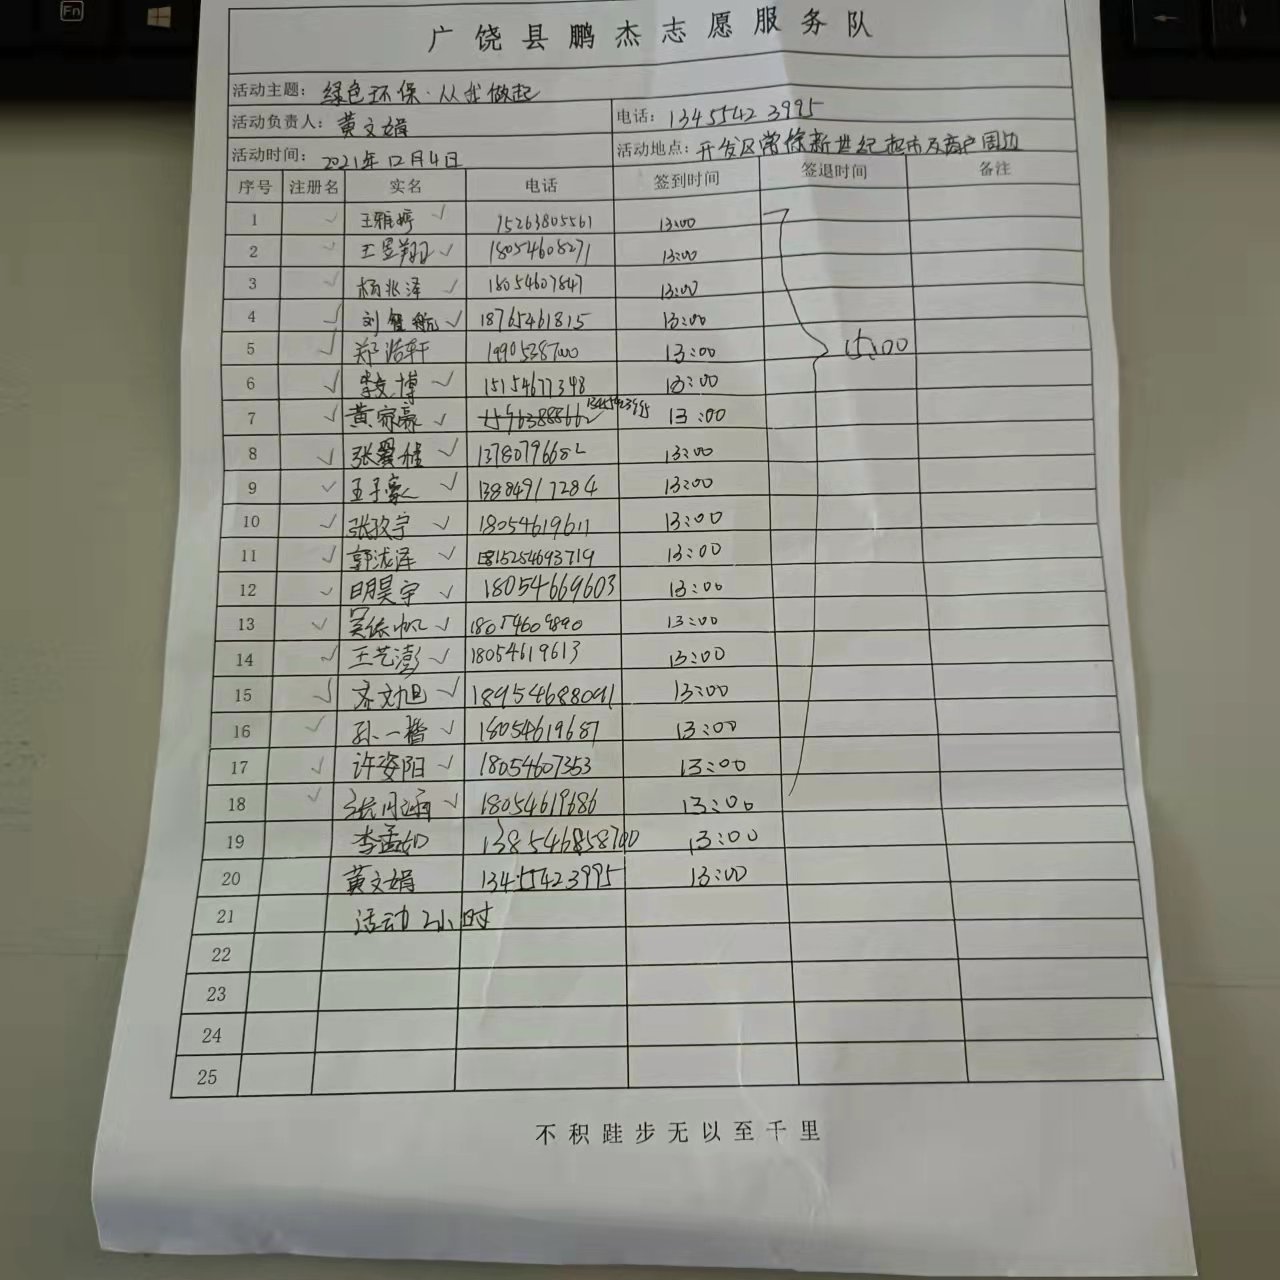 广饶县鹏杰志愿服务队
活动主题：绿色环保·从我做起
活动负责人：黄文娟 电话：13455423995
活动时间：2021年12月4日 活动地点：开发区常徐新世纪超市及商户周边
序号 注册名 实名 电话 签到时间 签退时间 备注
1 ✓ 王雅婷 ✓ 15263805561 13:00
2 ✓ 王昱翔 ✓ 18054608271 13:00
3 ✓ 杨兆泽 ✓ 18054607847 13:00
4 ✓ 刘智航 ✓ 18765461815 13:00
5 ✓ 郑浩轩 13:00 15:00
6 ✓ 李文博 ✓ 15154677348 13:00
7 ✓ 黄家豪 ✓ 13455423995 13:00
8 ✓ 张翼 ✓ 13780796682 13:00
9 ✓ 王子豪 ✓ 13884917284 13:00
10 ✓ 张玫宇 ✓ 18054619611 13:00
11 ✓ 郭泷泽 ✓ 15254693719 13:00
12 ✓ 明昊宇 ✓ 18054669603 13:00
13 ✓ 吴 帆 ✓ 18054609890 13:00
14 ✓ 王艺澎 ✓ 18054619613 13:00
15 ✓ 齐文旭 ✓ 18954688091 13:00
16 ✓ 孙一 ✓ 18054619687 13:00
17 ✓ 许姿阳 ✓ 18054607353 13:00
18 ✓ 张 涵 ✓ 18054619686 13:00
19 李孟如 138546858700 13:00
20 黄文娟 13455423995 13:00
21 活动2小时
22
23
24
25
不积跬步无以至千里
Fn